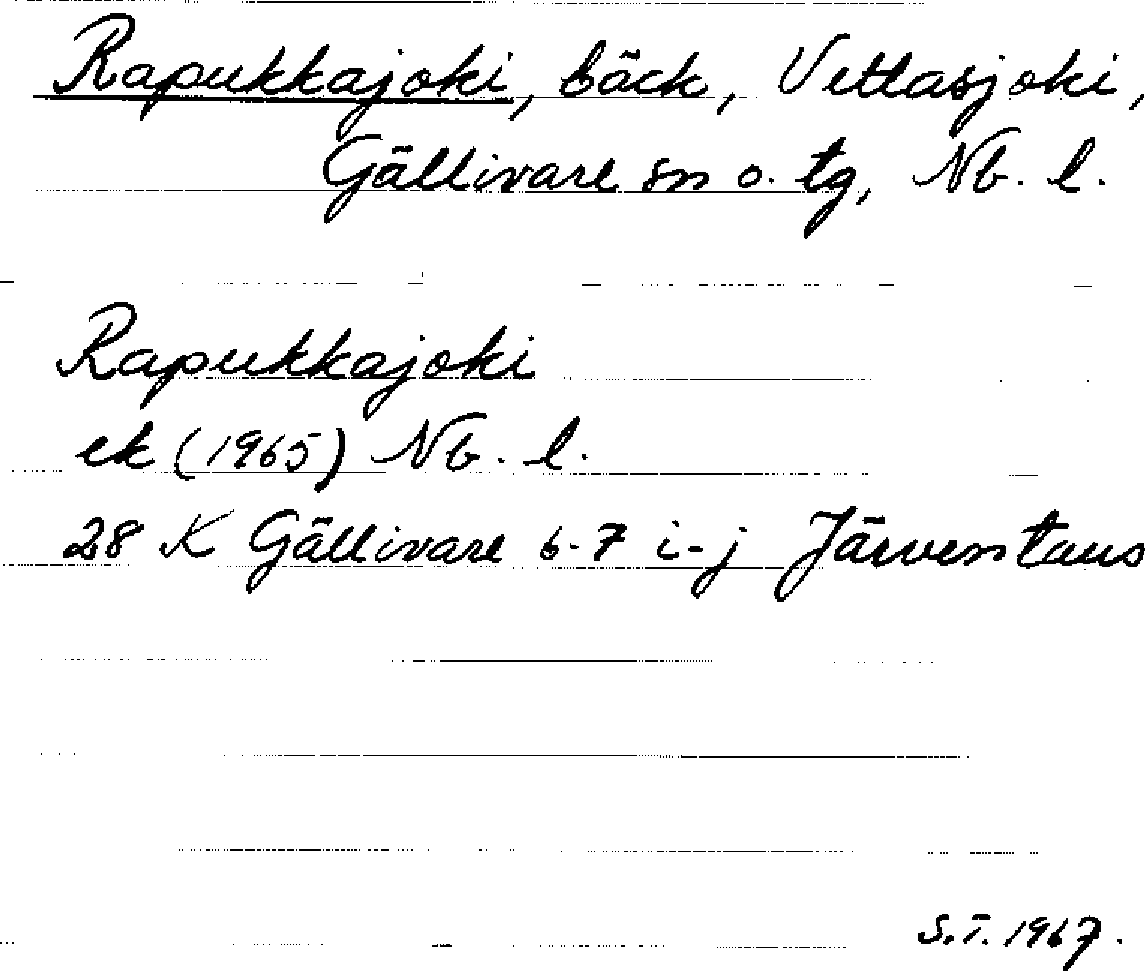 Rapukkajoki, bäck, Vettasjoki,
Gällivare sn o. tg, Nb. l.
Rapukkajoki
ek (1965) Nb. l.
28 K Gällivare 6-7 i-j Järventaus
S.T. 1967.